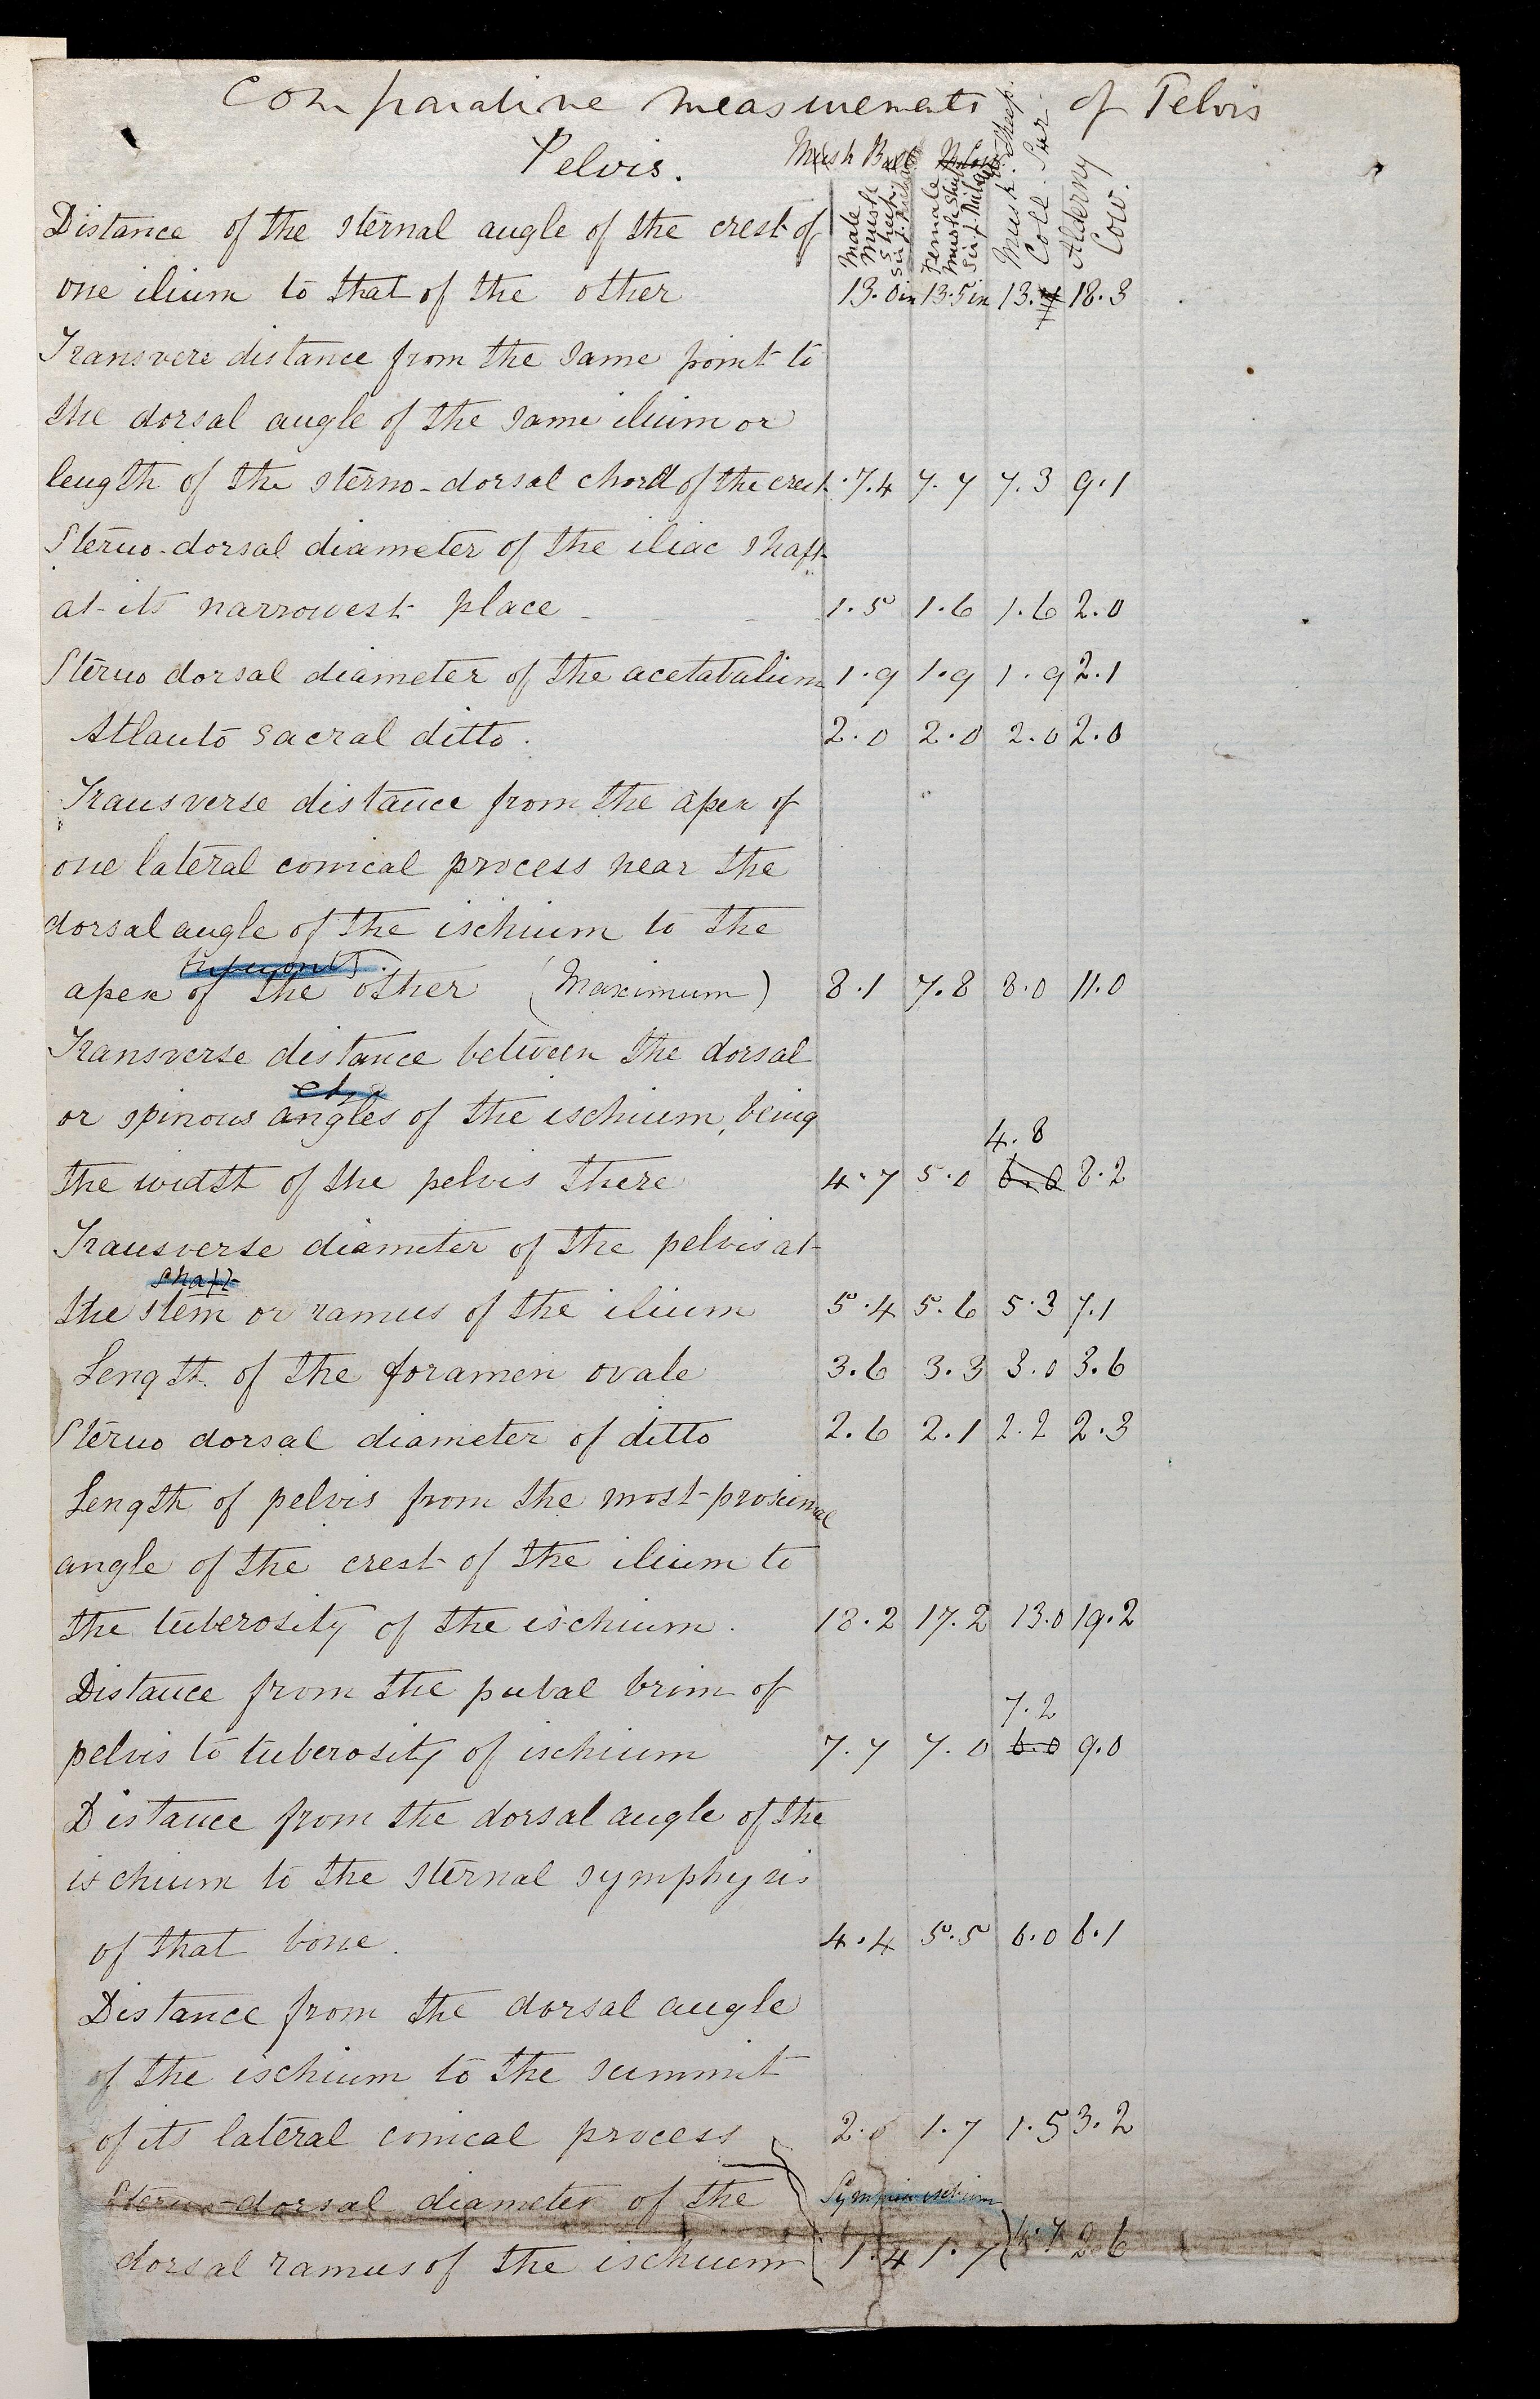 Comparative measurements of Pelvis
Pelvis.
Musk Bull
Male Musk Sheep Sir J. Richardson
Female Musk Sheep Sir J. Richardson
Musk. Sheep. Coll. Sur.
Alderny Cow.
Distance of the sternal angle of the crest of
one ilium to that of the other 13.0in 13.5in 13. 18.3
Transvere distance from the same point to
the dorsal angle of the same ilium or
length of the sterno-dorsal chord of the crest. 7.4 7.7 7.3 9.1
Sterno-dorsal diameter of the iliac shaft
at its narrowest place 1.5 1.6 1.6 2.0
Sterno dorsal diameter of the acetabulum 1.9 1.9 1.9 2.1
Atlanto sacral ditto. 2.0 2.0 2.0 2.0
Transverse distance from the apex of
one lateral conical process near the
dorsal angle of the ischium to the
apex of the other (Maximum) 8.1 7.8 8.0 11.0
Transverse distance between the dorsal
or spinous angles of the ischium, being
4.8
the width of the pelvis there 4.7 5.0 6.0 8.2
Transverse diameter of the pelvis at
shaft
the stem or ramus of the ilium 5.4 5.6 5.3 7.1
Length of the foramen ovale 3.6 3.3 3.0 3.6
Sterno dorsal diameter of ditto 2.6 2.1 2.2 2.3
Length of pelvis from the most proximal
angle of the crest of the ilium to
the tuberosity of the ischium. 18.2 17.2 13.0 19.2
Distance from the pubal brim of
7.2
pelvis to tuberosity of ischium 7.7 7.0 6.0 9.0
Distance from the dorsal angle of the
ischium to the sternal symphysis
of that bone. 4.4 5.5 6.0 6.1
Distance from the dorsal angle
of the ischium to the summit
of its lateral conical process 2.0 1.7 1.5 3.2
Sterno-dorsal diameter of the
dorsal ramus of the ischium 1.4 1.7 2.6